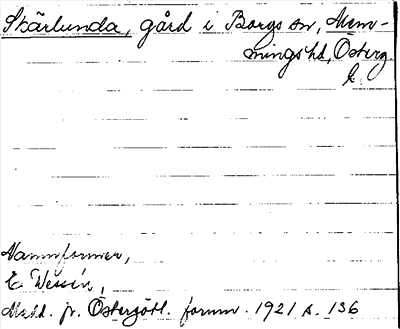 Skärlunda, gård i Borgs sn, Mem-
mingshd, Österg.
E.
Namnformer,
E Wessén,
Medd. fr. Östergötl. fornm. 1921 s. 136